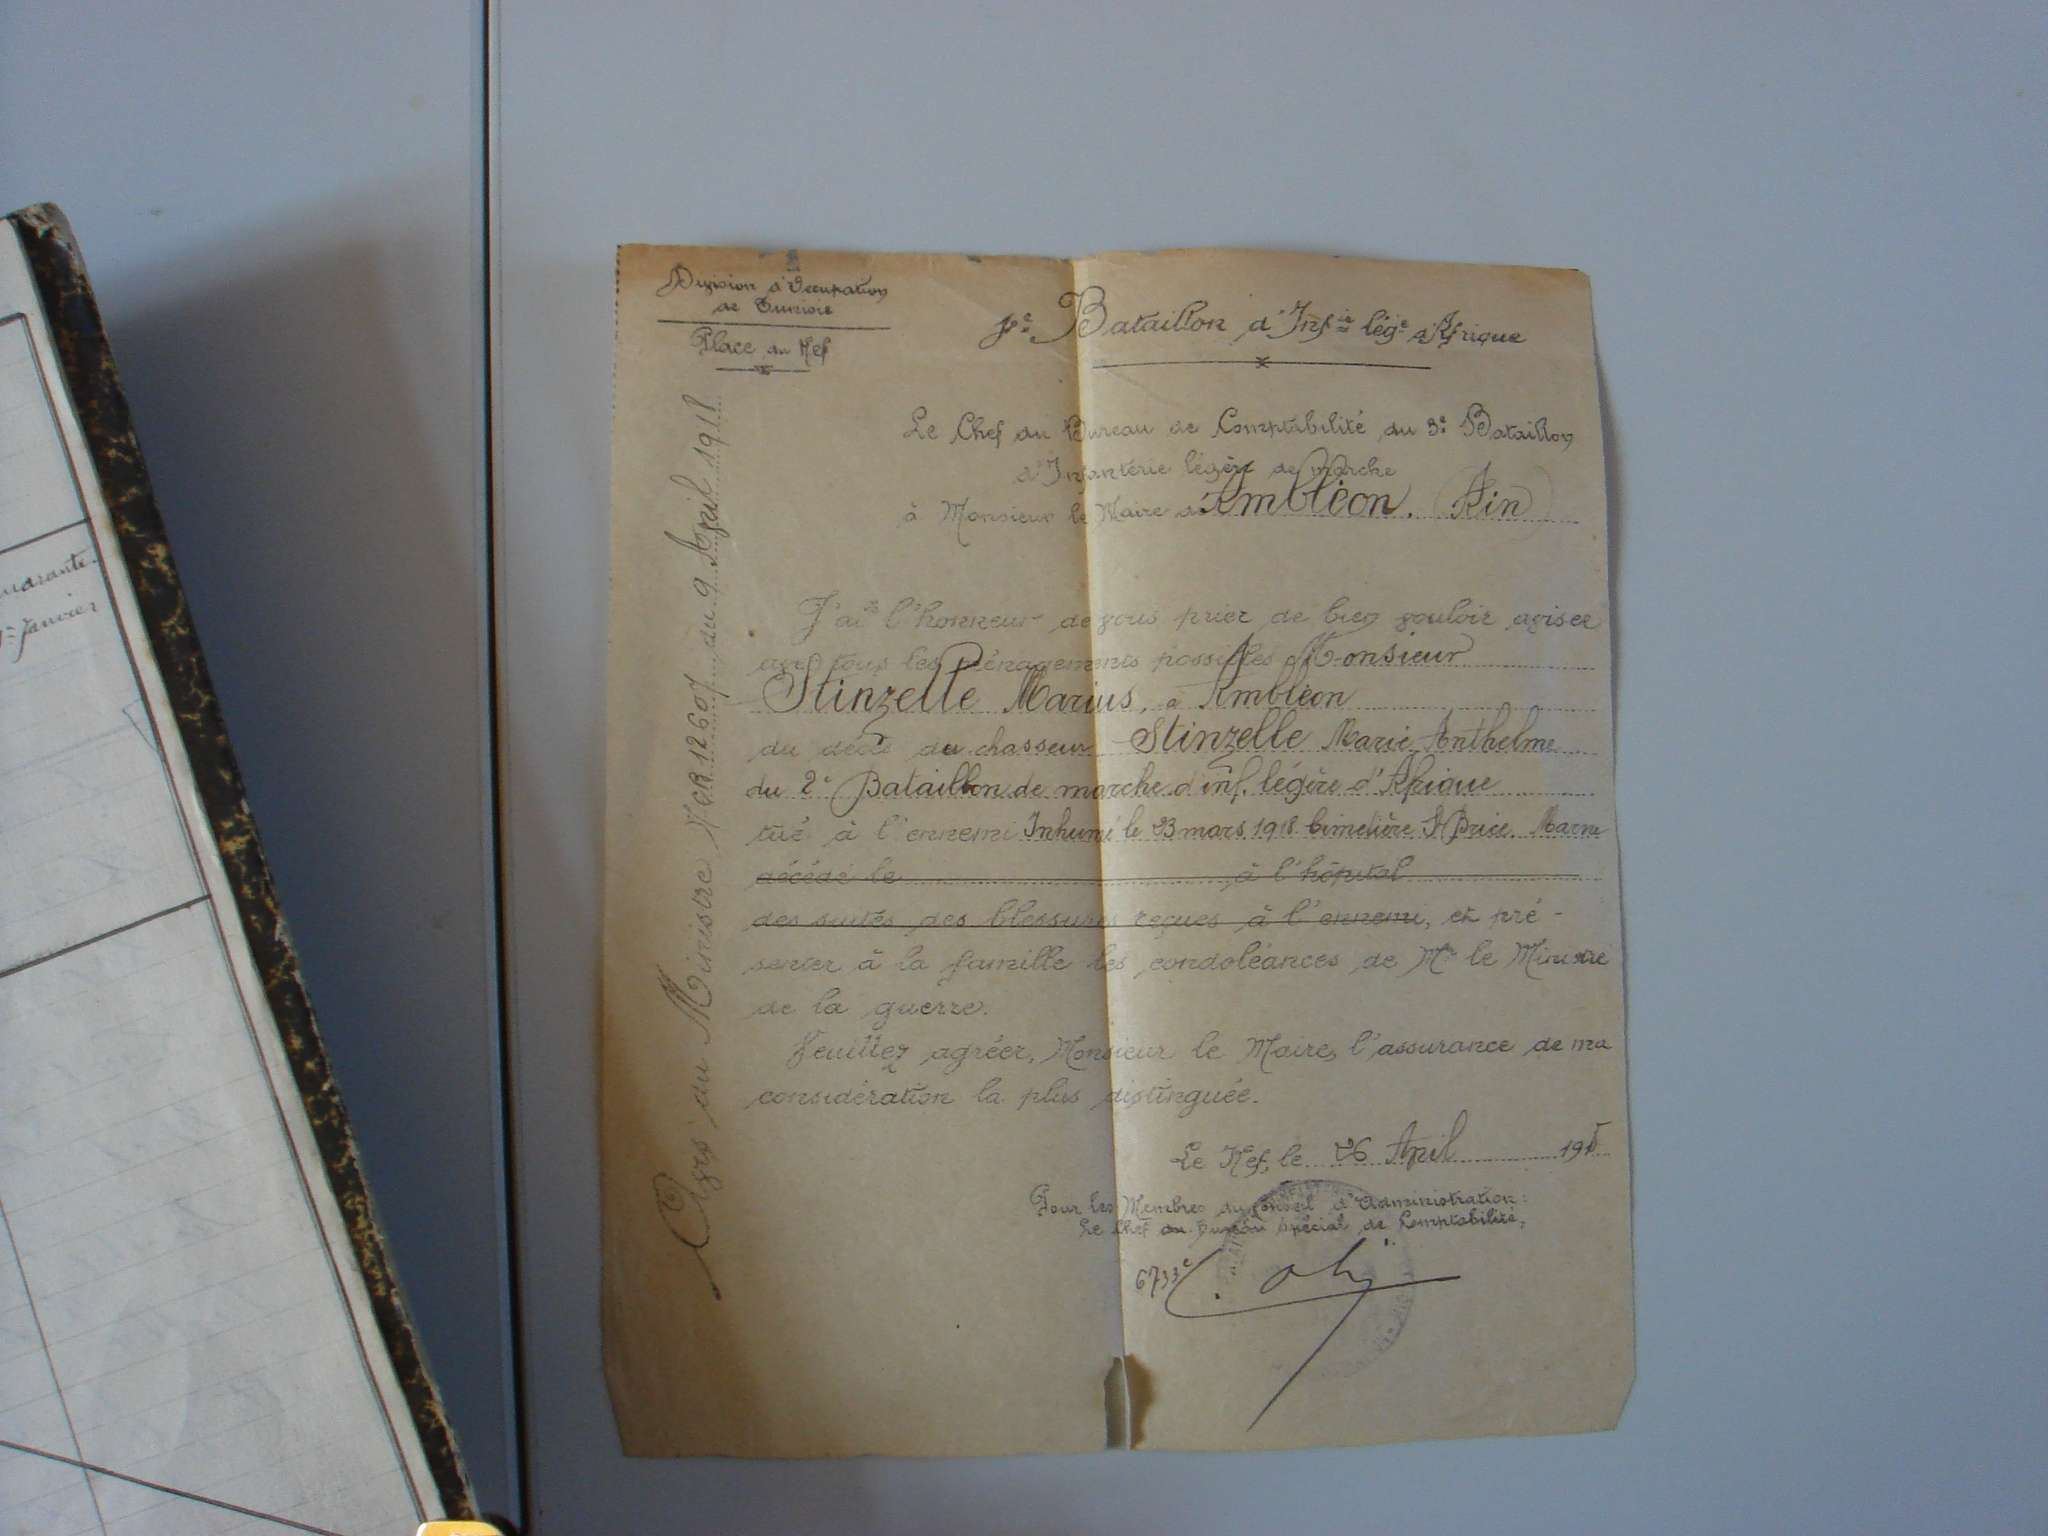 Division d'Occupation
de Tunisie
Place du Kef
Bataillon d'Infie légre d'Afrique
Le Chef du Bureau de Comptabilité du 3e Bataillon
d'Infanterie légère de marche
à Monsieur le Maire d'Ambléon. (Ain)
J'ai l'honneur de vous prier de bien vouloir aviser
avec tous les ménagements possibles Monsieur
Stinzelle Marius, à Ambléon
du décès du chasseur Stinzelle Marie Anthelme
du 2e Bataillon de marche d'inf. légère d'Afrique
tué à l'ennemi Inhumé le 23 mars 1918 Cimetière St Prix. Marne
décédé le à l'hôpital
des suites des blessures reçues à l'ennemi, et pré-
senter à la famille les condoléances de Mr le Ministre
de la guerre.
Veuillez agréer, Monsieur le Maire, l'assurance de ma
considération la plus distinguée.
Le Kef, le 26 Avril 191
Pour les Membres du Conseil d'Administration:
Le Chef du Bureau Spécial de Comptabilité,
6733
Avis au Ministre 12607 du 9 Avril 1918
quarante-
1er Janvier